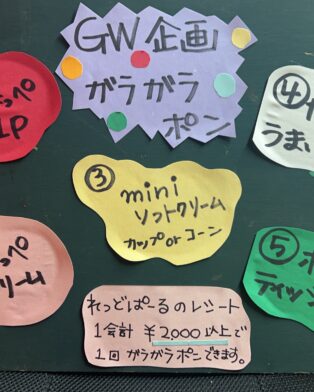 GW企画
ガラガラ
ポン
UP
③
mini
ソフトクリーム
カップorコーン
④
うまい
リーム
⑤ ポ
ティッシ
れっどぱーるのレシート
1会計 ¥2,000以上で
1回 ガラガラポンできます。